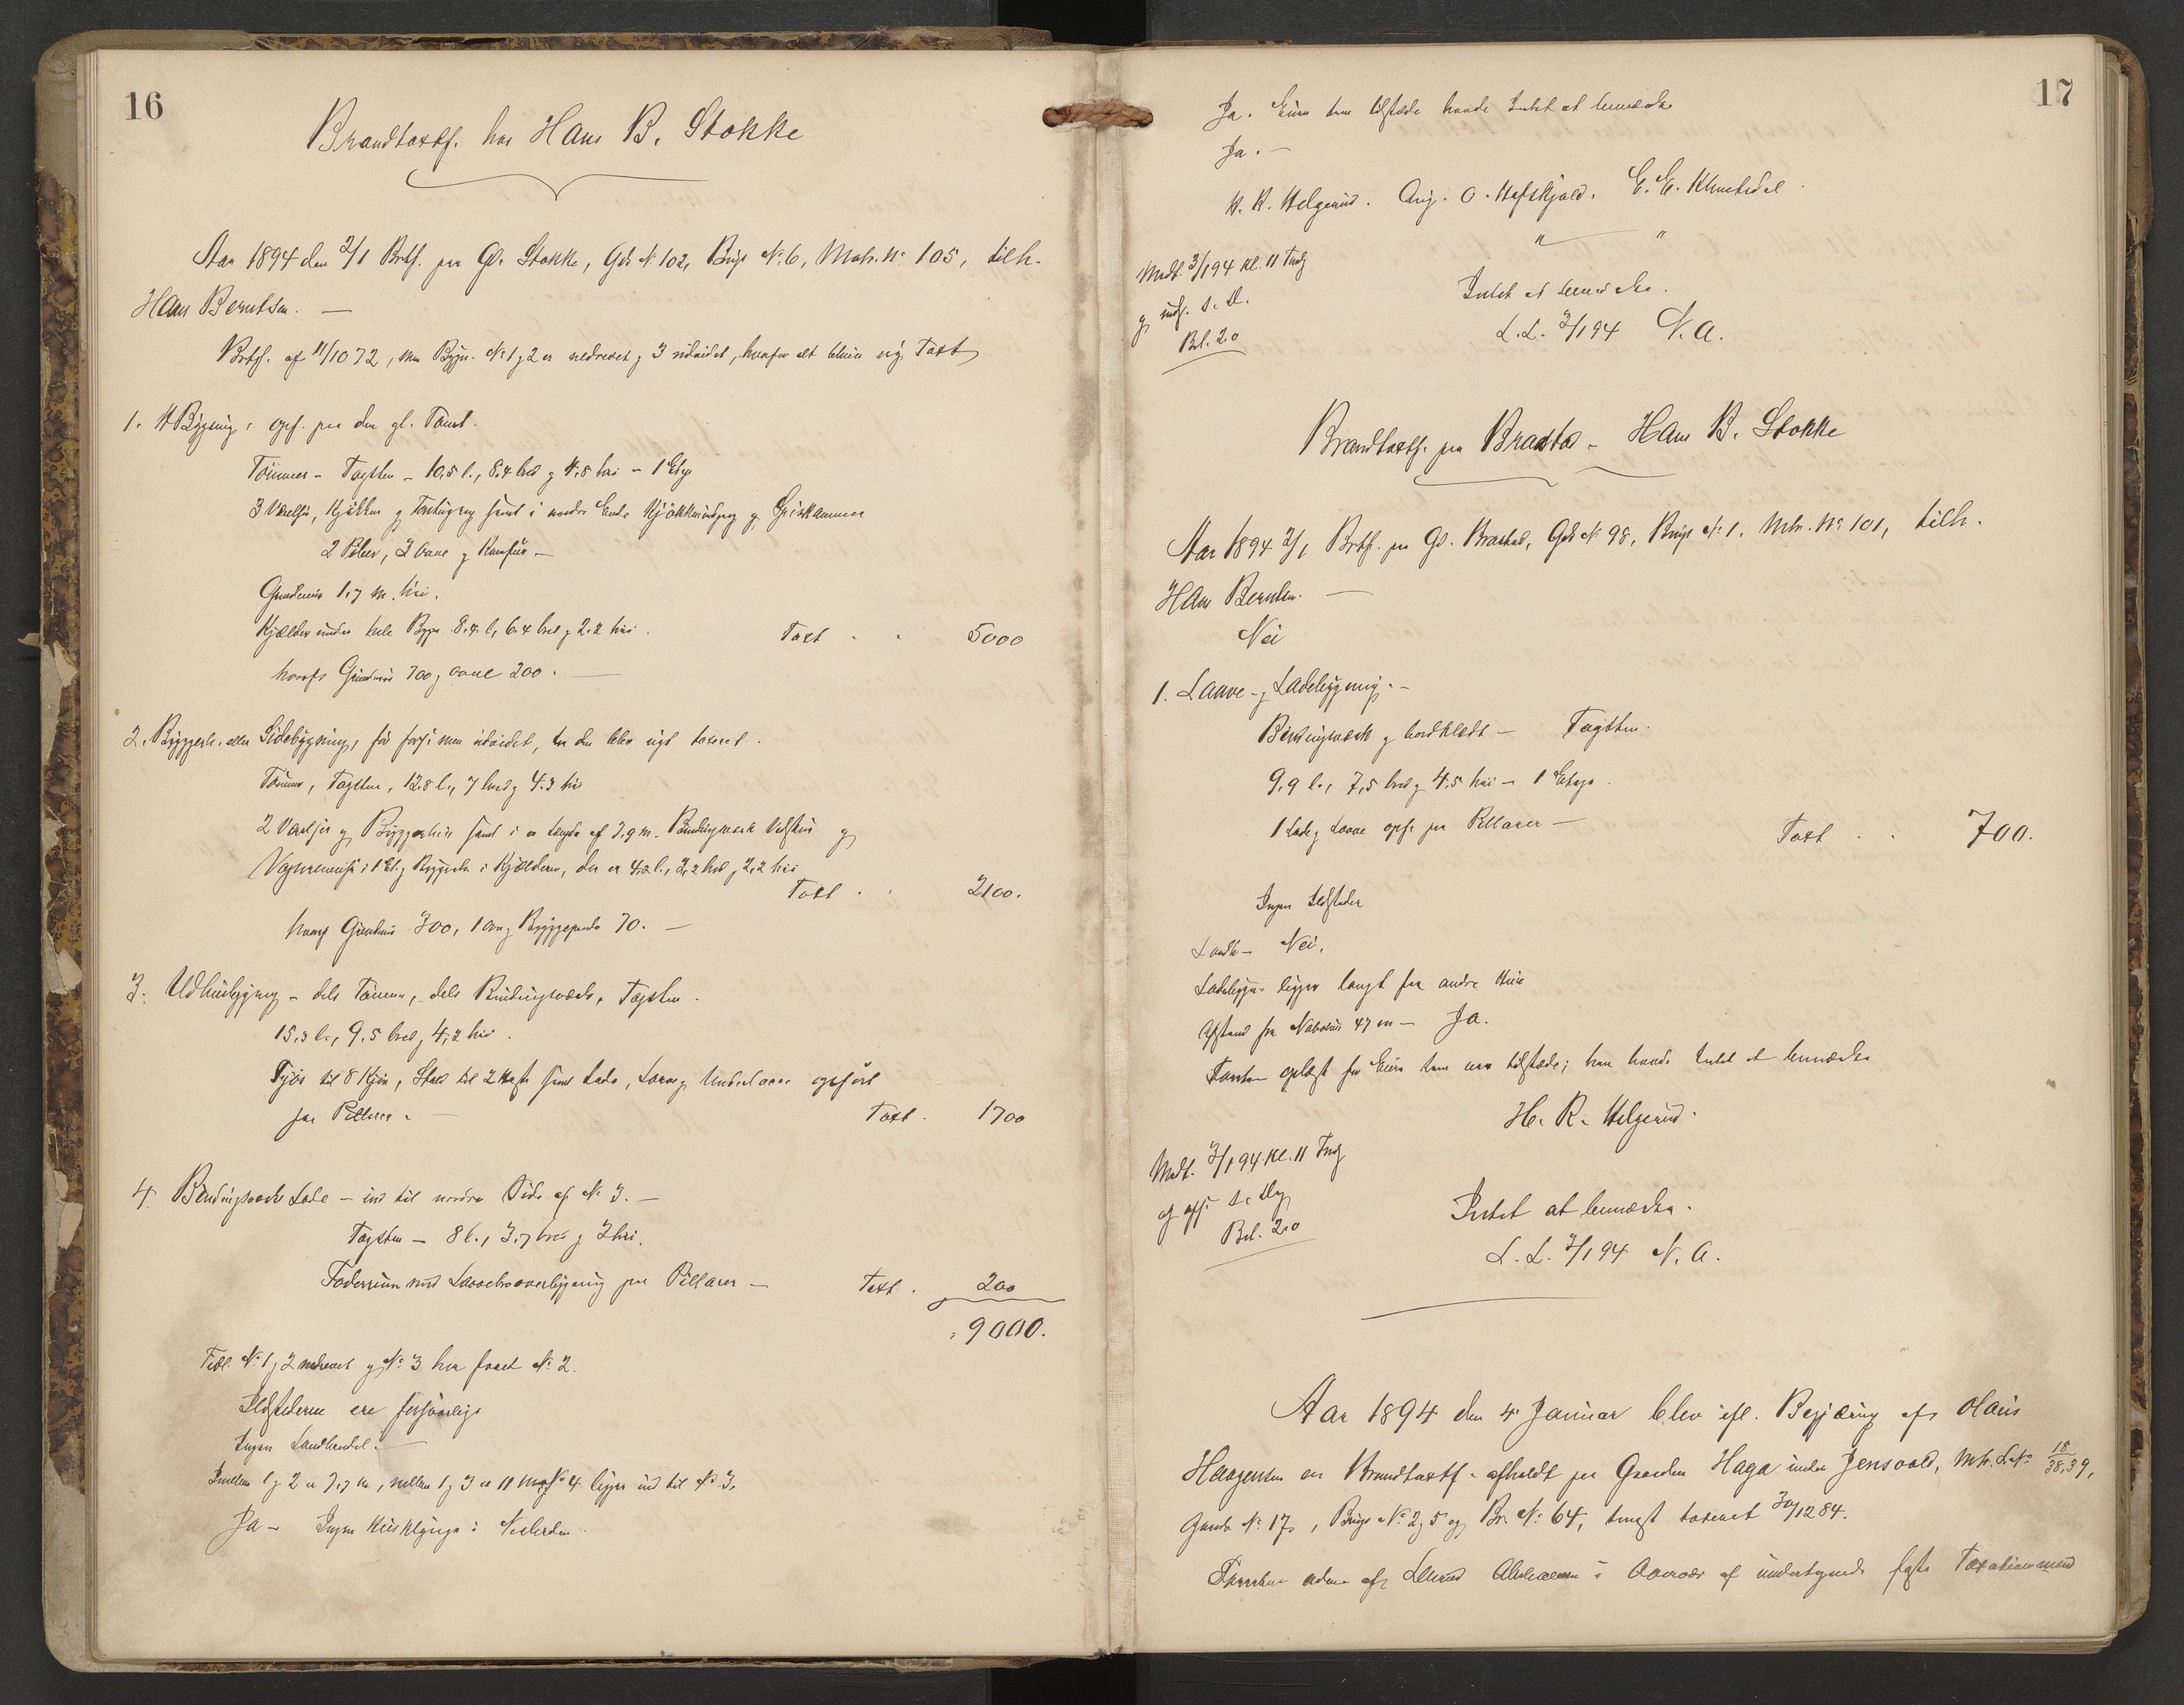 16
Brandtaxtf. hos Hans B. Stokke
Aar 1894 den 2/1 Brtf. paa Gd. Stokke, Gds N. 102, Brugs N. 6, Matr. N. 105, tilh.
Hans Berntsen. —
Brtf. af 11/10 72, men Bygn. N. 1 og 2 er nedrevet og 3 udvidet, hvorfor alt bliver ny Taxt
1. V. Bygning opf. paa den gl. Tomt.
Tømmer - Tagsten - 10,5 l., 8,4 bred og 4,8 høi - 1 Etg.
3 Værelser, Kjøkken og Forstugang samt i nordre Ende Kjøkkenindgang og Spiskammer
2 Piber, 3 Ovne og Komfur —
Grundmur 1,7 m. høi.
Kjælder under hele Bygn. 8,4 l., 6,4 bred og 2,2 høi. Taxt . . 5000
hvoraf Grundmur 700 og ovne 200. —
2. Bryggerh. eller Sidebygning, før udvidet, blev nyt taxeret.
Tømmer, Tagsten, 12,8 l., 7 bred og 4,3 høi
2 Værelser og Bryggerhus samt i en Længde af 3,9 m. Bindingsværk Vedskur og
Vognremise i 1 Et. og i Kjælderen, der er 4,2 l., 3,2 bred og 2,2 høi
Taxt . . 2100.
hvoraf Grundmur 300, 1 Ovn og Bryggepande 70. —
3. Udhusbygning - dels Tømmer, dels Bindingsværk, Tagsten.
15,3 l., 9,5 bred og 4,2 høi.
Fjøs til 8 Kjør, Stald til 2 Heste samt Lade, Laave og Underlaave opført
paa Pillarer. — Taxt . 1700
4. Bindingsværks Lade - ind til nordre Side af N. 3. —
Tagsten - 8 l., 3,7 bred og 3 høi.
Foderrum med Laavebrooverbygning paa Pillarer — Taxt . 200
9000.
Tidl. N. 1 og 2 nedrevet og N. 3 har faaet N. 2.
Ildstederne ere forsvarlige
Ingen Landhandel. —
Imellem 1 og 2 er 7,7 m, mellem 1 og 3 er 11 m og N. 4 ligger ind til N. 3.
Ja - Ingen Husklynge i Nærheden.
17
Ja. Eieren som tilstede havde Intet at bemærke
Ja. —
H. R. Helgerud. Aug. O. Hofskjold. E. E.
" — "
Modt. 3/1 94 Kl. 11 Fmdg
og indf. s. D.
Bet. 2.0
Intet at bemærke.
L. L. 3/1 94 N. A.
Brandtaxtf. paa Brastad - Hans B. Stokke
Aar 1894 2/1 Brtf. paa Gd. Brastad, Gds N. 98, Brugs N. 1. Mtr. N. 101, tilh.
Hans Berntsen. —
Nei
1. Laave- og Ladebygning. —
Bindingsværk og bordklædt — Tagsten.
9,9 l., 7,5 bred og 4,5 høi - 1 Etage.
1 Lade og Laave opf. paa Pillarer — Taxt . . 700.
Ingen Ildsteder
Landh — Nei.
Ladebygn. ligger langt fra andre Huse
Afstand fra Nabohus 47 m — Ja.
Taxten oplæst for Eieren som var tilstede; han havde Intet at bemærke
H. R. Helgerud.
Modt. 3/1 94 Kl. 11 Fmdg
og opf. s. Dag
Bet. 2.0
Intet at bemærke.
L. L. 3/1 94 N. A.
Aar 1894 den 4 Januar blev efl. Begjæring af Olaus
Haagensen en Brandtaxtf. afholdt paa Gaarden Haga under Jensvold, Mtr. L. N. 18/38, 39,
Gaards N. 17, Brugs N. 2, 5 og Br. N. 64, taxeret 30/12 84.
af Lensmd i Overvær af undertegnede faste Taxationsmænd